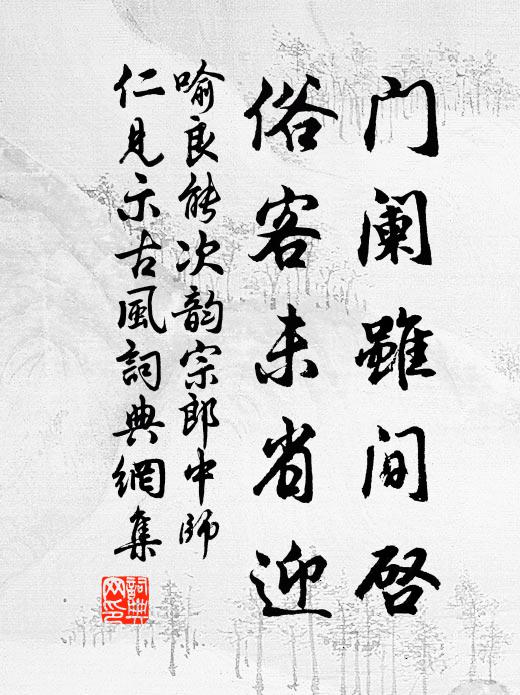 门阑雖间启
俗客未省迎
喻良能次韵宗郎中师
仁見示古風詞典網集
詞典